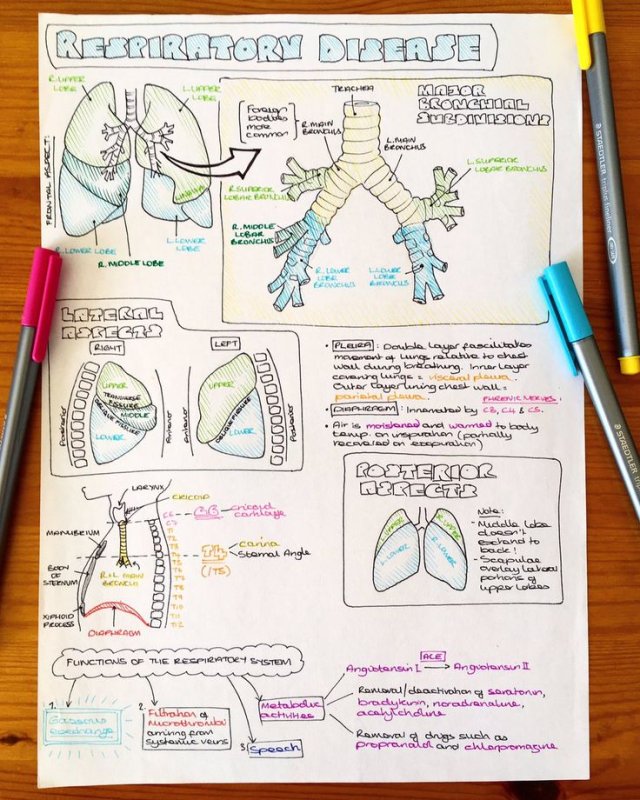 RESPIRATORY DISEASE
R.UPPER
LOBE
L.UPPER
LOBE
FRONTAL ASPECT:
LINGULA
R.LOWER LOBE
L.LOWER
LOBE
R.MIDDLE LOBE
MAJOR
BRONCHIAL
SUBDIVISIONS
TRACHEA
Foreign
bodies
more
common
R.MAIN
BRONCHUS
L.MAIN
BRONCHUS
R.SUPERIOR
LOBAR BRONCHUS
L.SUPERIOR
LOBAR BRONCHUS
R.MIDDLE
LOBAR
BRONCHUS
R.LOWER
LOBE
BRONCHUS
L.LOWER
LOBE
BRONCHUS
LATERAL
ASPECTS
RIGHT
LEFT
UPPER
TRANSVERSE
FISSURE
MIDDLE
OBLIQUE FISSURE
LOWER
Posterior
Anterior
UPPER
OBLIQUE FISSURE
LOWER
Anterior
Posterior
• PLEURA: Double layer fascilitates
movement of lungs relative to chest
wall during breathing. Inner layer
covering lungs = visceral pleura.
Outer layer lining chest wall =
parietal pleura.
PHRENIC NERVES:
• DIAPHRAGM: Innervated by C3, C4 & C5.
• Air is moistened and warmed to body
temp. on inspiration (partially
recovered on expiration)
POSTERIOR
ASPECTS
L.UPPER
R.UPPER
L.LOWER
R.LOWER
Note:
- Middle lobe
doesn't
extend to
back!
- Scapulae
overlay lateral
portions of
upper lobes
LARYNX
CRICOID
C6
cricoid
cartilage
C7
T1
T2
T3
T4
T5
T6
T7
T8
T9
T10
T11
T12
MANUBRIUM
T4
(/T5)
carina
Sternal Angle
BODY
OF
STERNUM
R+L MAIN
BRONCHI
XIPHOID
PROCESS
DIAPHRAGM
FUNCTIONS OF THE RESPIRATORY SYSTEM
1.
Gaseous
exchange
2.
Filtration of
microthrombi
arriving from
systemic veins
3.
Speech
Metabolic
activities
ACE
Angiotensin I → Angiotensin II
Removal/deactivation of serotonin,
bradykinin, noradrenaline,
acetylcholine
Removal of drugs such as
propranolol and chlorpromazine
STAEDTLER triplus fineliner
STAEDTLER
STAEDTLER